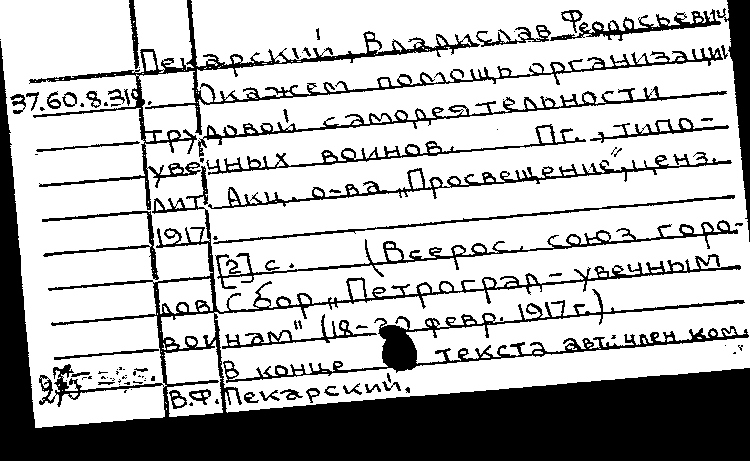 Пекарский, Владислав Феодосьевич
37.60.8.318. Окажем помощь организации
трудовой самодеятельности
увечных воинов. Пг., типо-
лит. Акц. о-ва „Просвещение", ценз.
1917.
[2] с. (Всерос. союз горо-
дов. Сбор „Петроград - увечным
воинам" (18-20 февр. 1917 г.).
В конце текста авт.: член ком.
В.Ф. Пекарский.